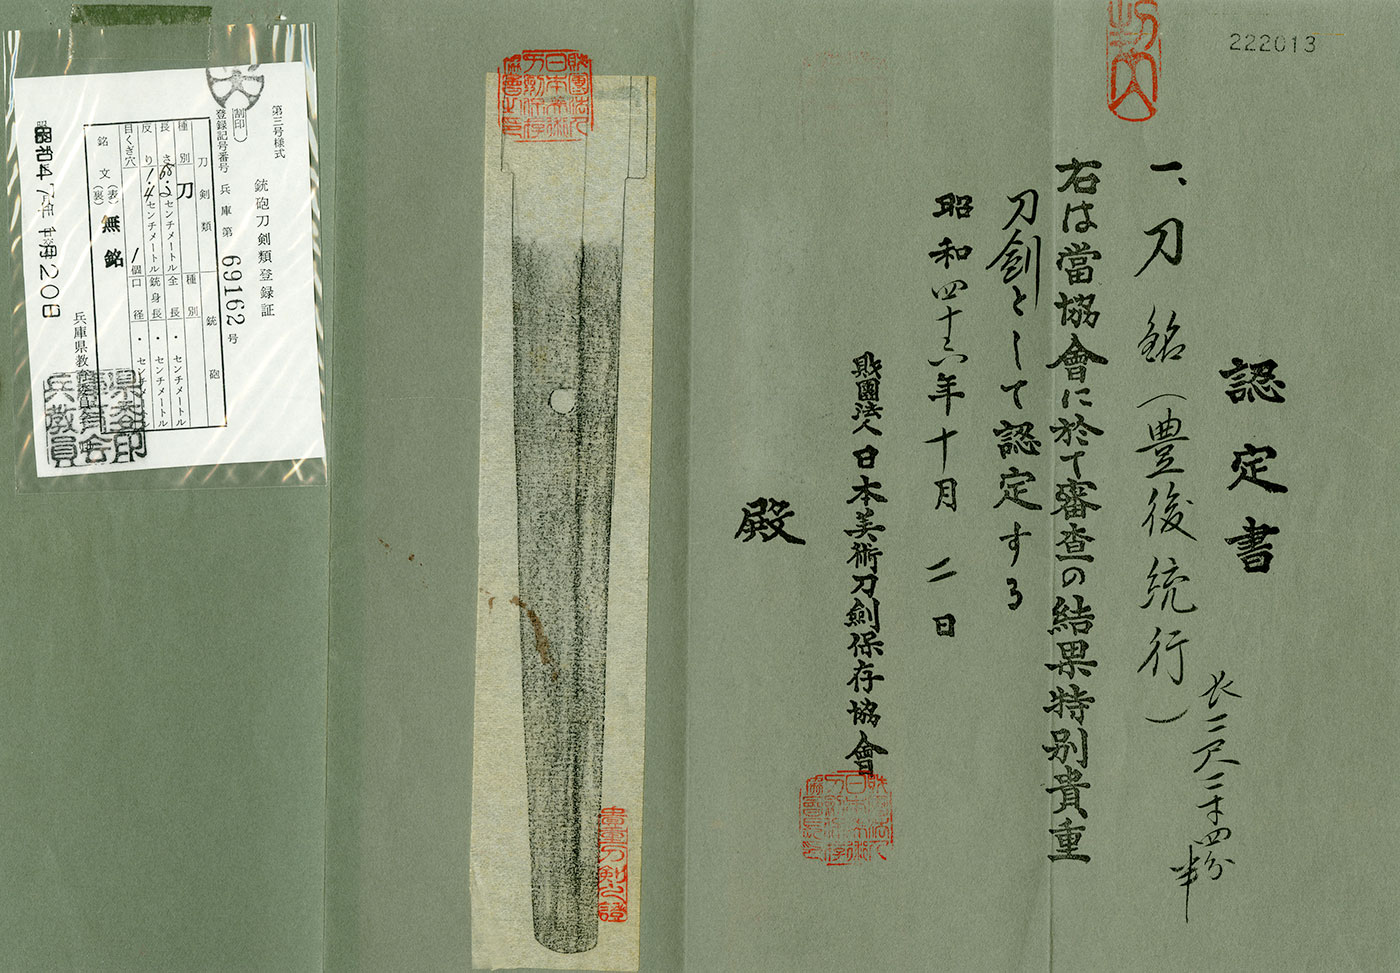 222013
認定書
一、刀 銘(豊後統行)
長二尺二寸四分半
右は當協會に於て審査の結果特別貴重
刀劍として認定する
昭和四十六年十月二日
財團法人日本美術刀劍保存協會
殿
財團法人日本美術刀劍保存協會之印
貴重刀剣之證
第三号様式
銃砲刀剣類登録証
(割印)
登録記号番号 兵庫第 69162 号
刀剣類 銃砲
種別 刀 種別
長さ 68.2 センチメートル 全長 ・ センチメートル
反り 1.4 センチメートル 銃身長 ・ センチメートル
目くぎ穴 1 個 口径 ・ センチメートル
銘文 (表) 無銘
(裏)
昭和47年 月20日
兵庫県教